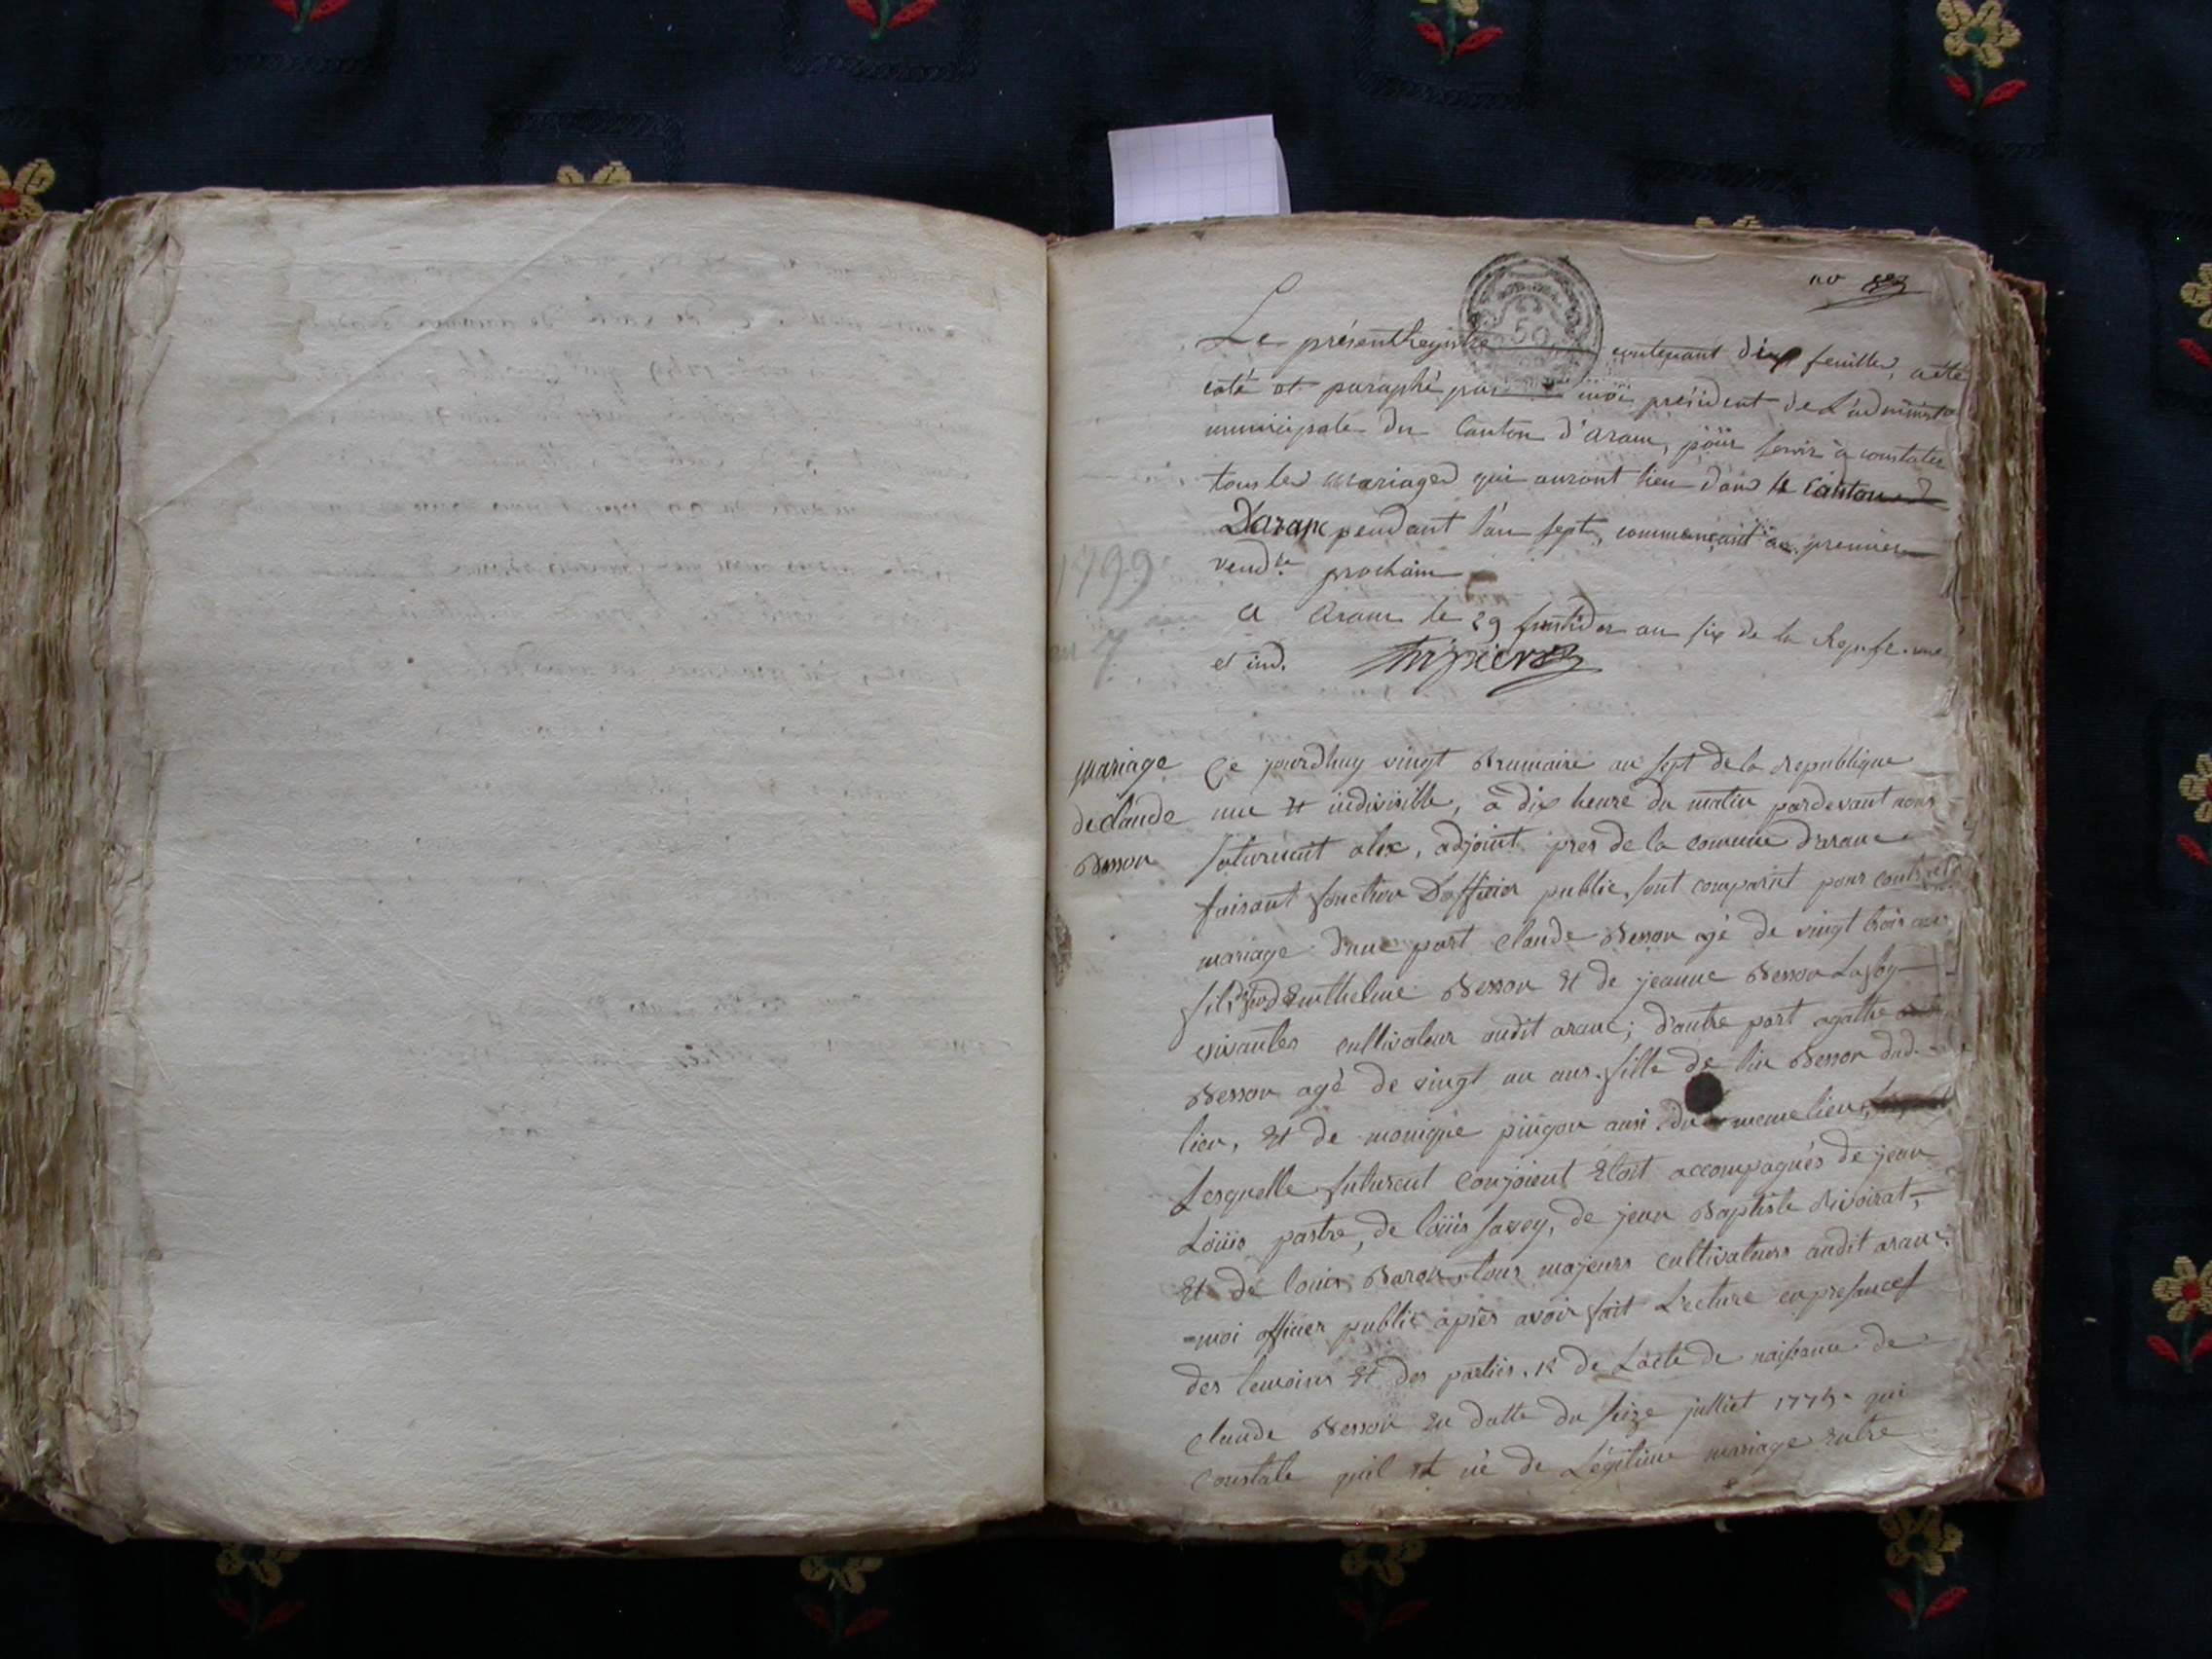 no 83
50
Le présent Registre contenant dix feuilles, a été
coté et paraphé par moi président de L'administ
municipale du Canton d'aranc, pour servir à constater
tous les mariages qui auront lieu dans le Canton d
D'aranc pendant l'an sept, commençant au premier
vend.re prochain
1799
a Aranc le 29 fructidor an six de la Repub. une
et ind.
an 7
Mariage
de claude
Besson
Ce jourdhuy vingt Brumaire an sept de la Republique
une et indivisible, à dix heure du matin pardevant nous
saturnint alix, adjoint pres de la comune d'aranc
faisant fonction D'officier public, sont comparut pour contracté
mariage d'une part Claude Besson agé de vingt trois ans
fils de Enthelme Besson et de jeanne Besson
vivantes cultivateur audit aranc; d'autre part agathe
Besson agé de vingt un ans. fille de Besson dud.
lieu, et de monique pingon ausi du meme lieu
Lesquelle futurent Conjoient Etoit accompagnés de jean
Loüis pastre, de loüis savey, de jean Baptiste Rivoirat,
Et de louis Baron tous majeurs cultivateurs audit aranc.
moi officier public après avoir fait Lecture en presances
des temoins et des parties, 1° de Lacte de naissance de
claude Besson en datte du seize julliet 1775 qui
Constate quil et né de Légitime mariage entre